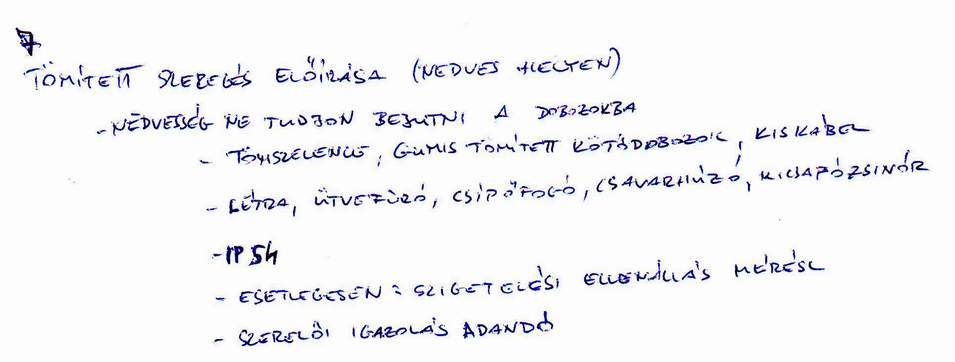 7
TÖMÍTETT SZERELÉS ELŐÍRÁSA (NEDVES HELYEN)
- NEDVESSÉG NE TUDJON BEJUTNI A DOBOZOKBA
- TÖMSZELENCE, GUMIS TÖMÍTETT KÖTŐDOBOZOK, KISKÁBEL
- LÉTRA, ÜTVEFÚRÓ, CSÍPŐFOGÓ, CSAVARHÚZÓ, KICSAPÓZSINÓR
- IP 54
- ESETLEGESEN: SZIGETELÉSI ELLENÁLLÁS MÉRÉSE
- SZERELŐI IGAZOLÁS ADANDÓ